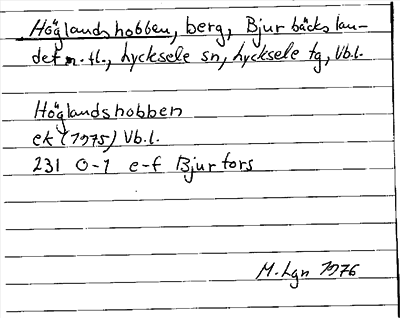 Höglandshobben, berg, Bjurbäckslan-
det n. tl., Lycksele sn, Lycksele tg, Vb.l.
Höglandshobben
ek (1975) Vb.l.
231 0-1 e-f Bjurfors
M. Lgn 1976